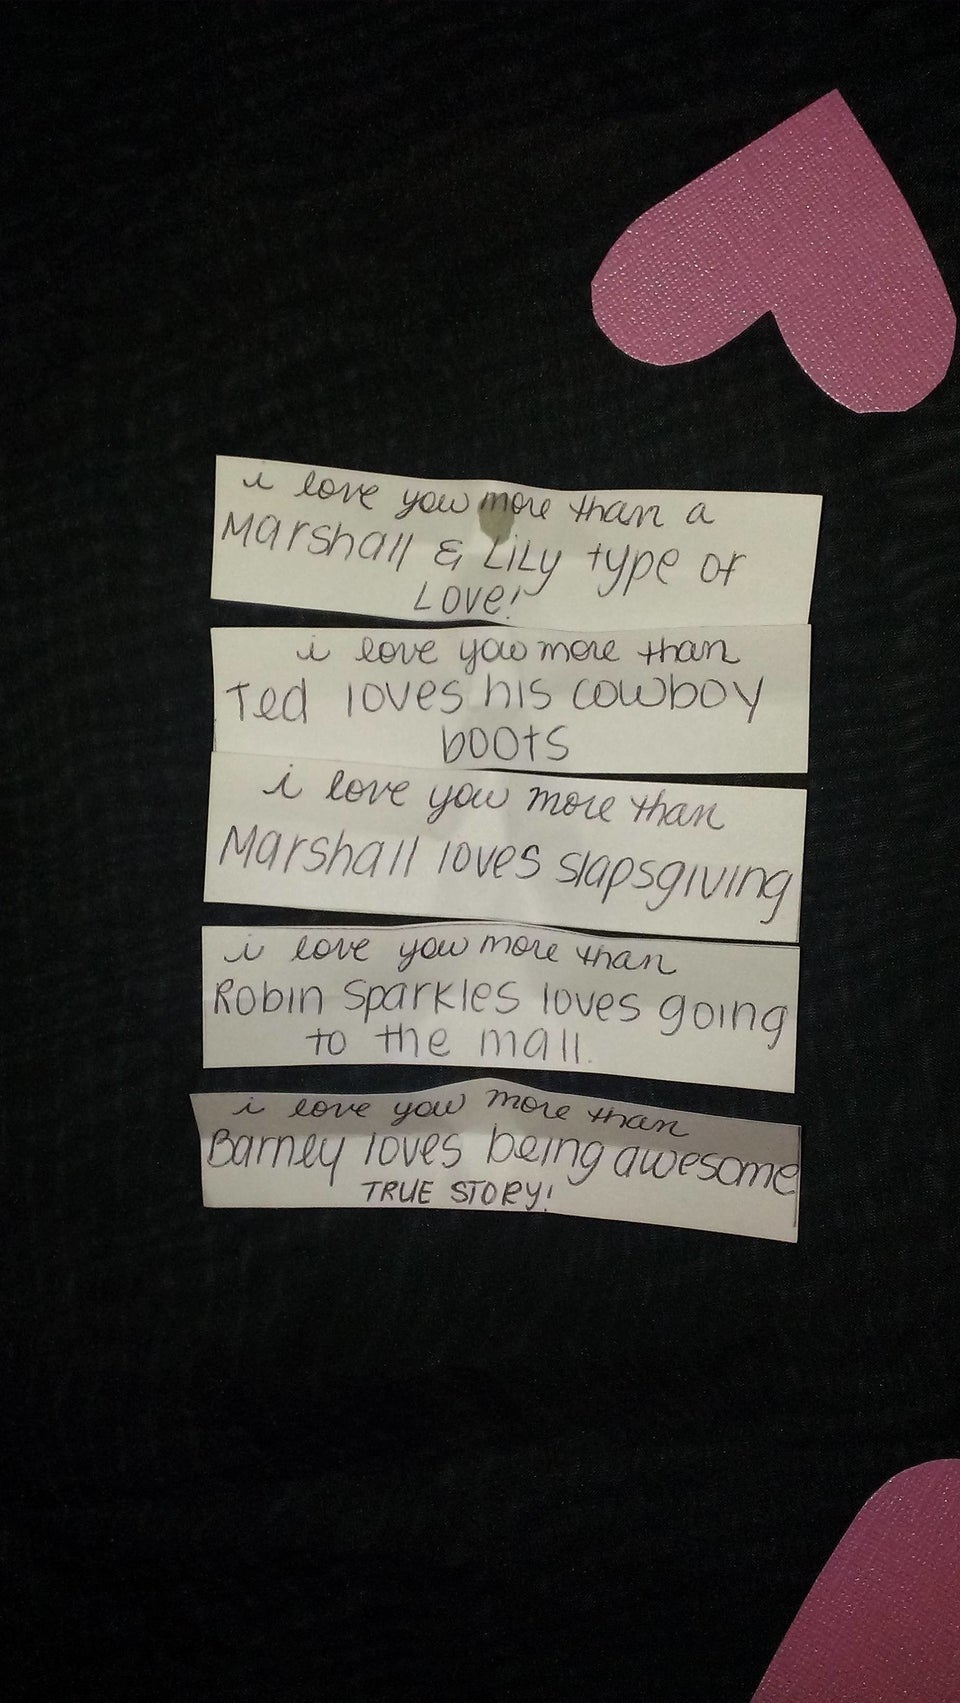 i love you more than a
Marshall & Lily type of
Love!
i love you more than
Ted loves his cowboy
boots
i love you more than
Marshall loves slapsgiving
i love you more than
Robin Sparkles loves going
to the mall.
i love you more than
Barney loves being awesome
TRUE STORY!